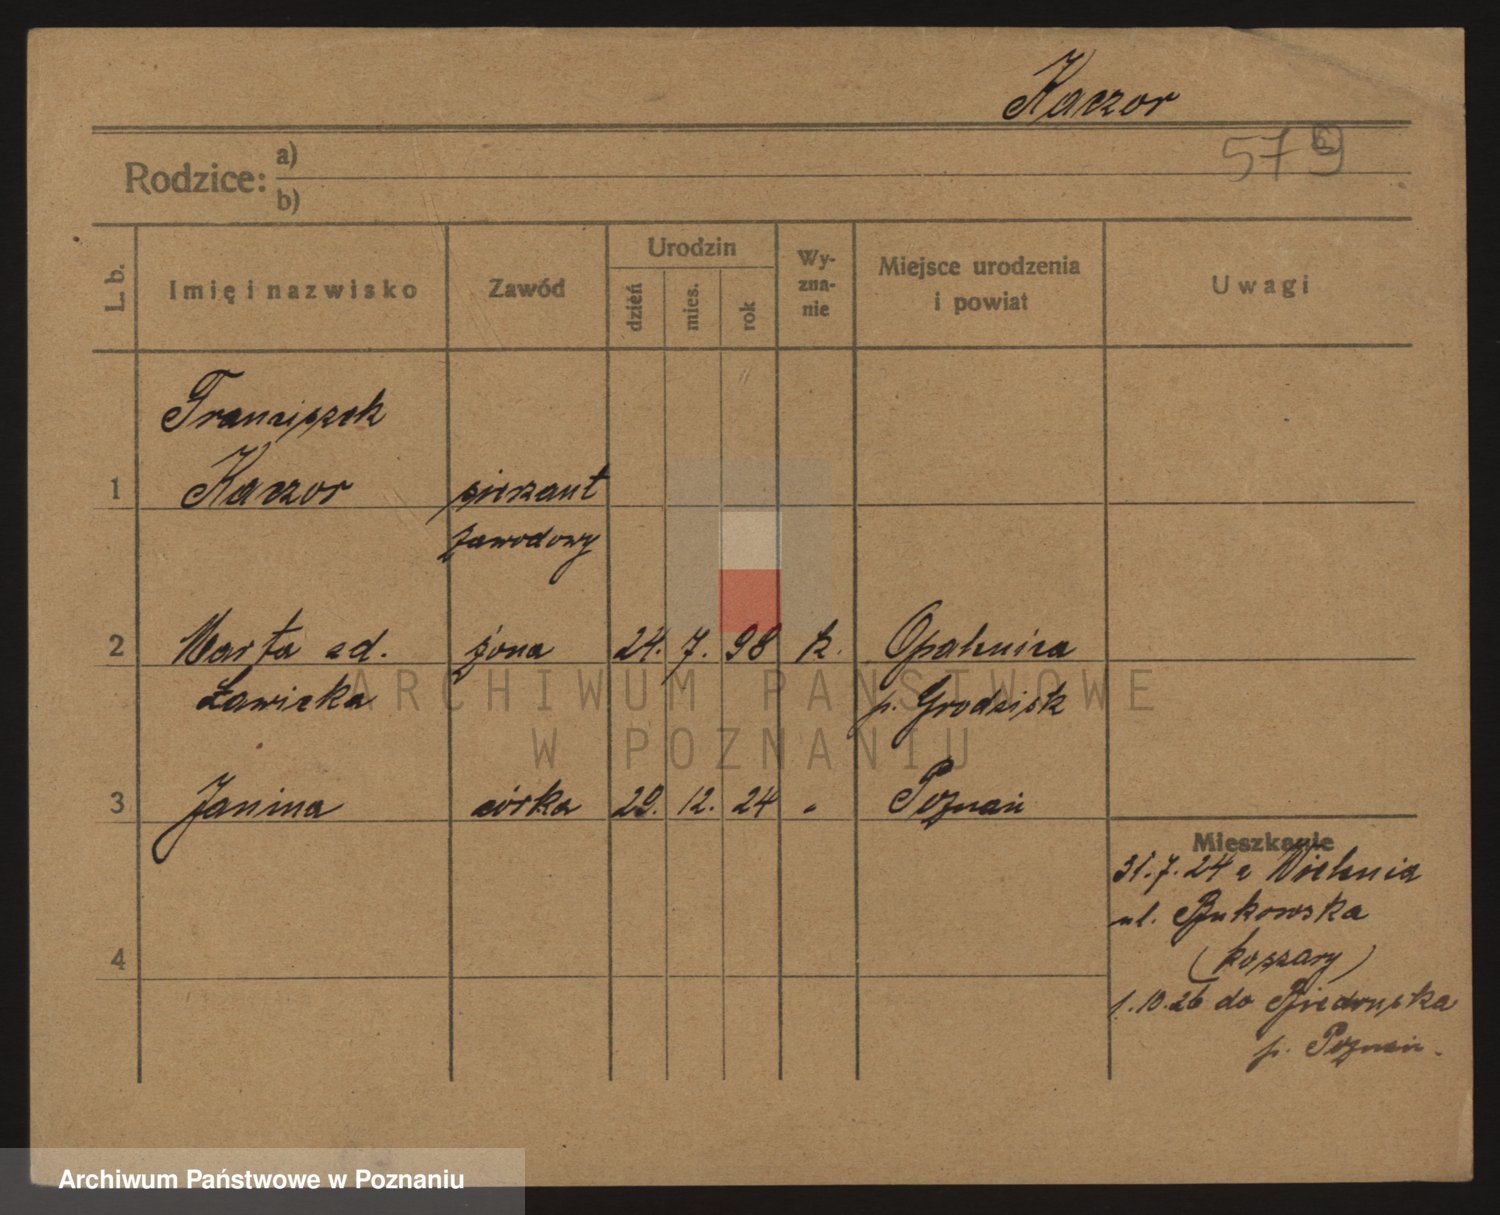 Kaczor
579
Rodzice: a)
b)
L. b.
Imię i nazwisko
Zawód
Urodzin
dzień
mies.
rok
Wy-
zna-
nie
Miejsce urodzenia
i powiat
Uwagi
Franciszek
1 Kaczor sierżant
zawodowy
2 Marta zd. żona 24. 7. 98 k. Opalenica
Ławicka p. Grodzisk
3 Janina córka 29. 12. 24 " Poznań
Mieszkanie
31.7.24 z Wielunia
ul. Bukowska
(koszary)
4
1.10.26 do Biedruska
p. Poznań.
ARCHIWUM PAŃSTWOWE
W POZNANIU
Archiwum Państwowe w Poznaniu